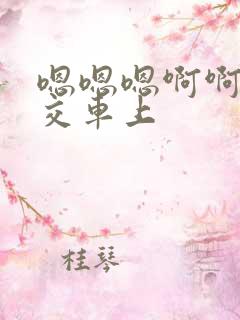 嗯嗯嗯啊啊
交车上
桂琴